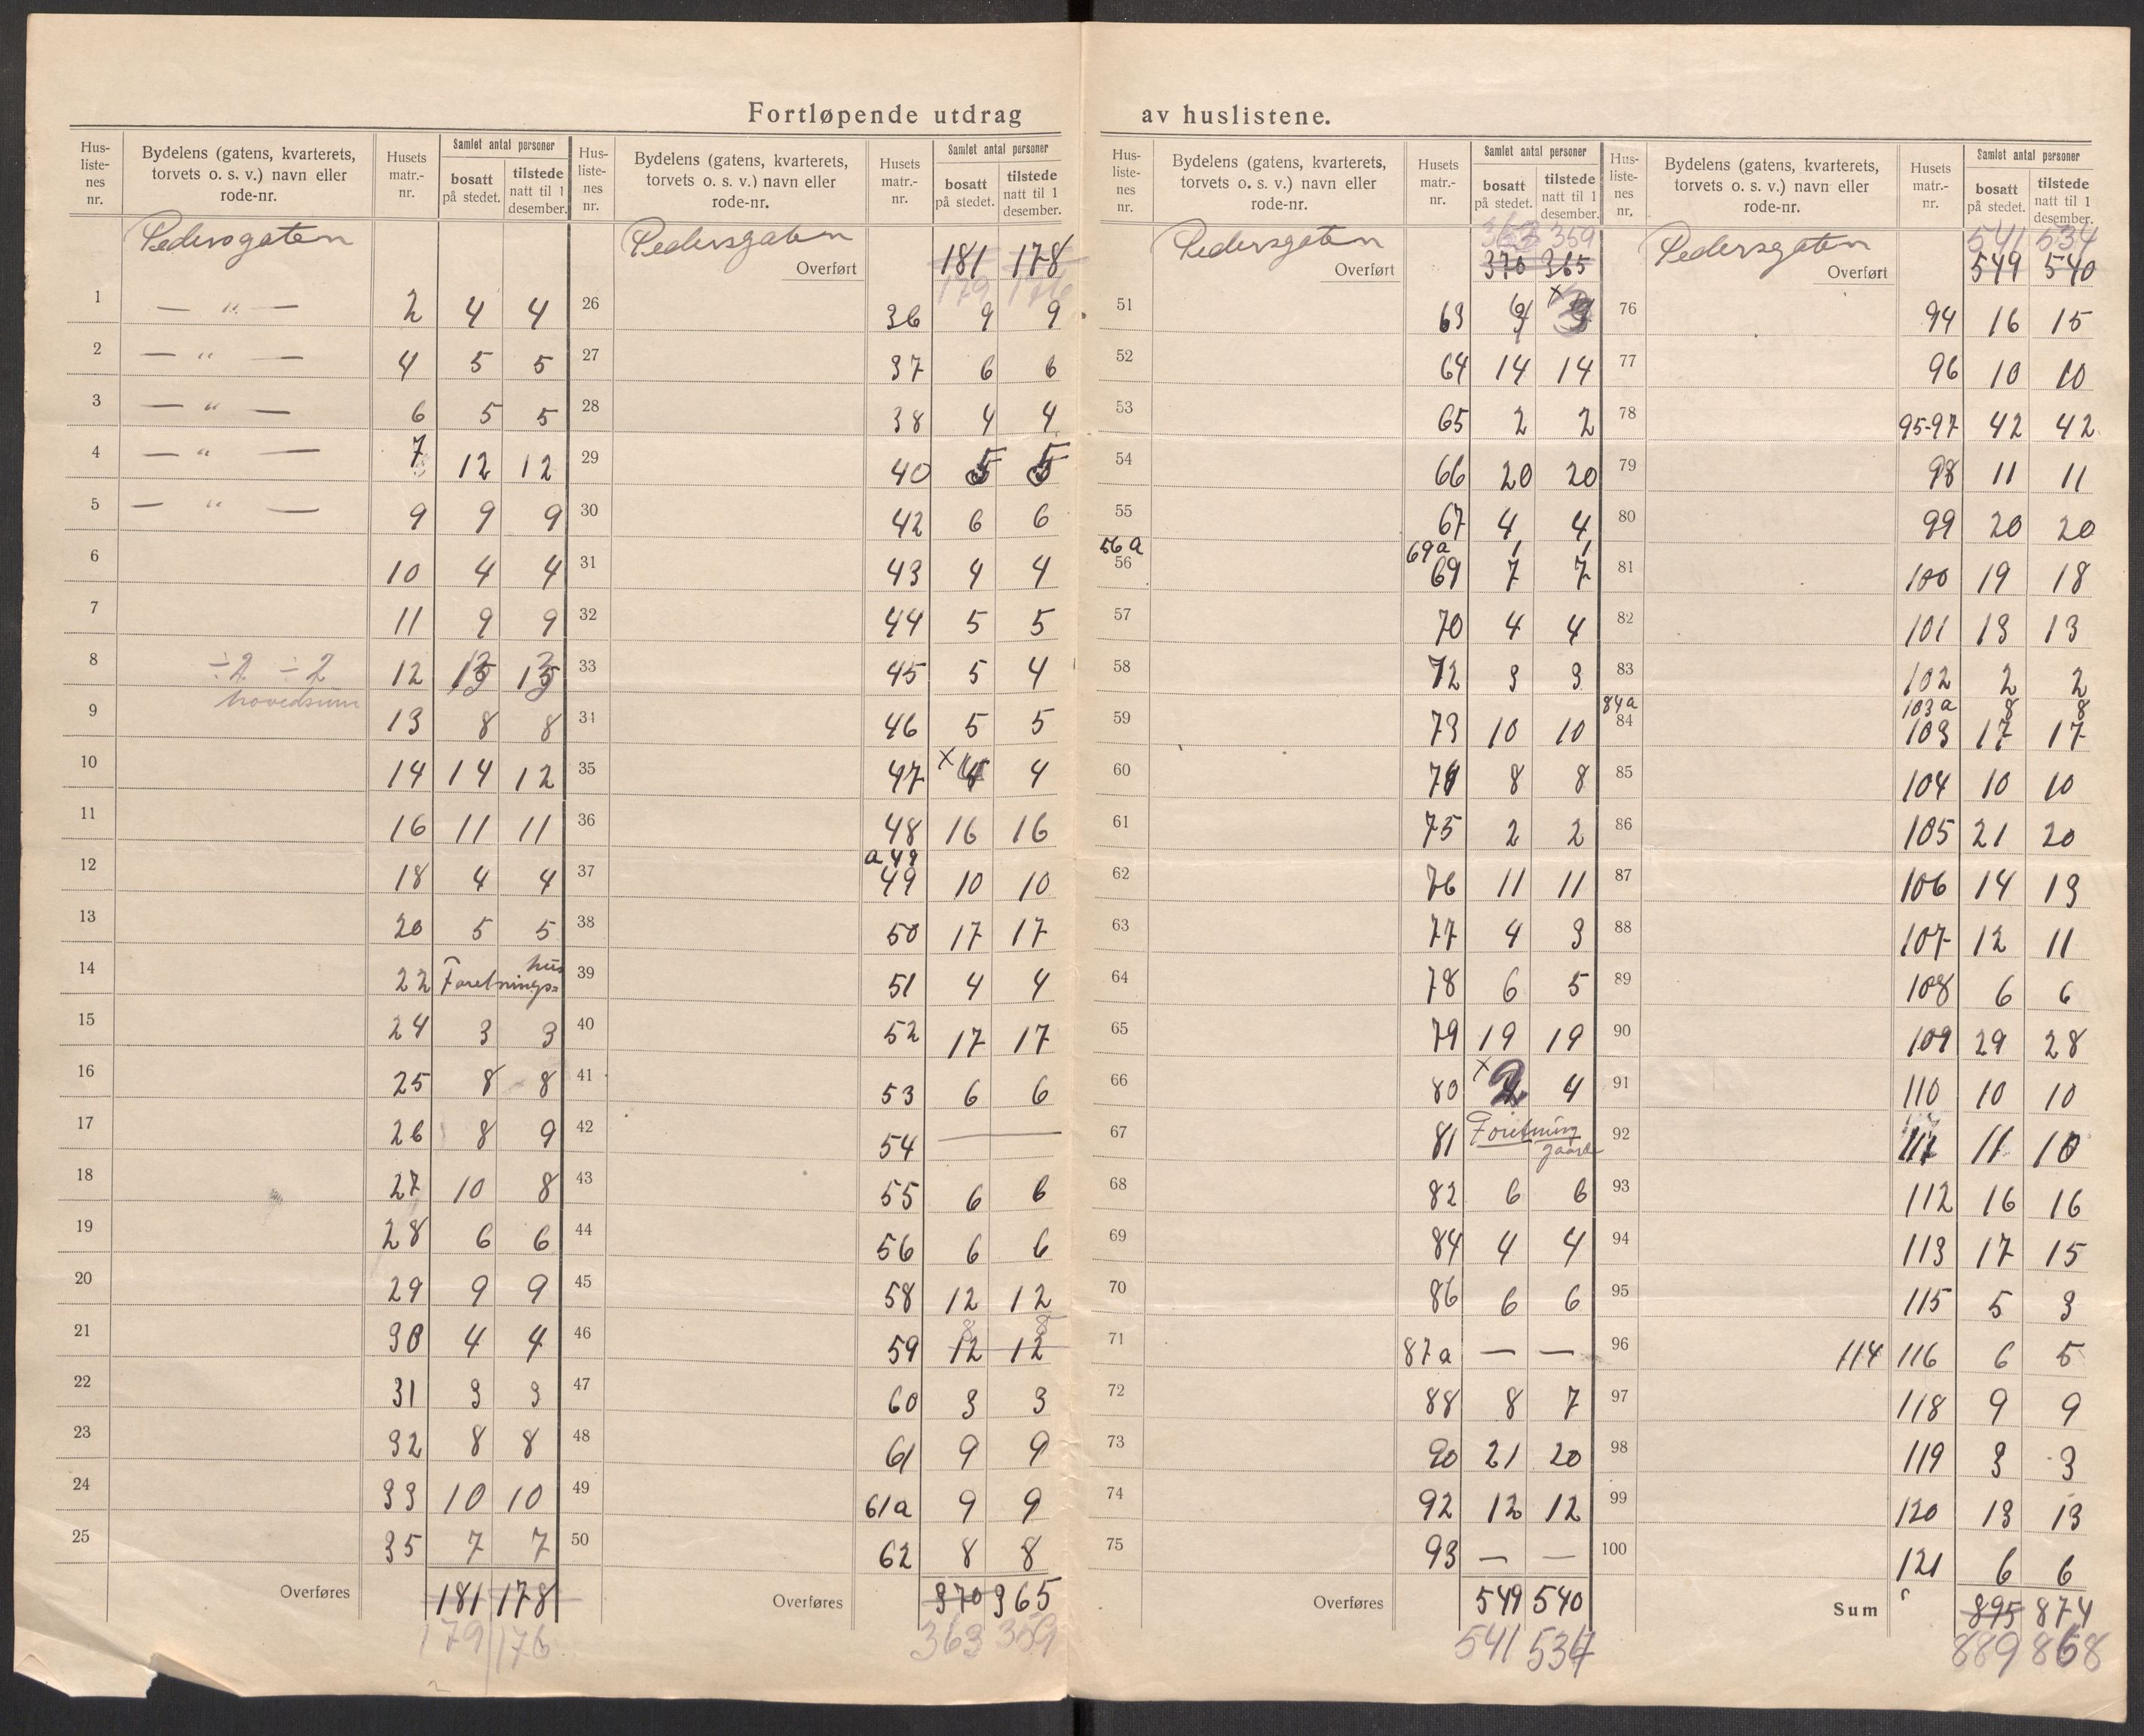 Fortløpende utdrag av huslistene.
Hus-liste-nes nr. | Bydelens (gatens, kvarterets, torvets o. s. v.) navn eller rode-nr. | Husets matr.-nr. | Samlet antal personer bosatt på stedet. | tilstede natt til 1 desember.
Pedersgaten
1 — „ — 2 4 4
2 — „ — 4 5 5
3 — „ — 6 5 5
4 — „ — 7 12 12
5 — „ — 9 9 9
6 10 4 4
7 11 9 9
8 ÷2 ÷2 12 13 13
hovedsum
9 13 8 8
10 14 14 12
11 16 11 11
12 18 4 4
13 20 5 5
14 22 Foretnings=hus
15 24 3 3
16 25 8 8
17 26 8 9
18 27 10 8
19 28 6 6
20 29 9 9
21 30 4 4
22 31 3 3
23 32 8 8
24 33 10 10
25 35 7 7
Overføres 181 178
179 176
Hus-liste-nes nr. | Bydelens (gatens, kvarterets, torvets o. s. v.) navn eller rode-nr. | Husets matr.-nr. | Samlet antal personer bosatt på stedet. | tilstede natt til 1 desember.
Pedersgaten
Overført 181 178
179 176
26 36 9 9
27 37 6 6
28 38 4 4
29 40 5 5
30 42 6 6
31 43 4 4
32 44 5 5
33 45 5 4
34 46 5 5
35 47 x 4
36 48 16 16
a 49
37 49 10 10
38 50 17 17
39 51 4 4
40 52 17 17
41 53 6 6
42 54 —
43 55 6 6
44 56 6 6
45 58 12 12
8 8
46 59 12 12
47 60 3 3
48 61 9 9
49 61a 9 9
50 62 8 8
Overføres 370 365
363 359
Hus-liste-nes nr. | Bydelens (gatens, kvarterets, torvets o. s. v.) navn eller rode-nr. | Husets matr.-nr. | Samlet antal personer bosatt på stedet. | tilstede natt til 1 desember.
Pedersgaten 363 359
Overført 370 365
51 63 9 x
52 64 14 14
53 65 2 2
54 66 20 20
55 67 4 4
56a 69a 1 1
56 69 7 7
57 70 4 4
58 72 3 3
59 73 10 10
60 74 8 8
61 75 2 2
62 76 11 11
63 77 4 3
64 78 6 5
65 79 19 19
66 80 x 2 4
67 81 Foretning gaard
68 82 6 6
69 84 4 4
70 86 6 6
71 87a — —
72 88 8 7
73 90 21 20
74 92 12 12
75 93 — —
Overføres 549 540
541 534
Hus-liste-nes nr. | Bydelens (gatens, kvarterets, torvets o. s. v.) navn eller rode-nr. | Husets matr.-nr. | Samlet antal personer bosatt på stedet. | tilstede natt til 1 desember.
Pedersgaten 541 534
Overført 549 540
76 94 16 15
77 96 10 10
78 95-97 42 42
79 98 11 11
80 99 20 20
81 100 19 18
82 101 13 13
83 102 2 2
84a 103a 8 8
84 103 17 17
85 104 10 10
86 105 21 20
87 106 14 13
88 107 12 11
89 108 6 6
90 109 29 28
91 110 10 10
92 111 11 10
93 112 16 16
94 113 17 15
95 115 5 3
96 114 116 6 5
97 118 9 9
98 119 3 3
99 120 13 13
100 121 6 6
Sum 895 874
889 868